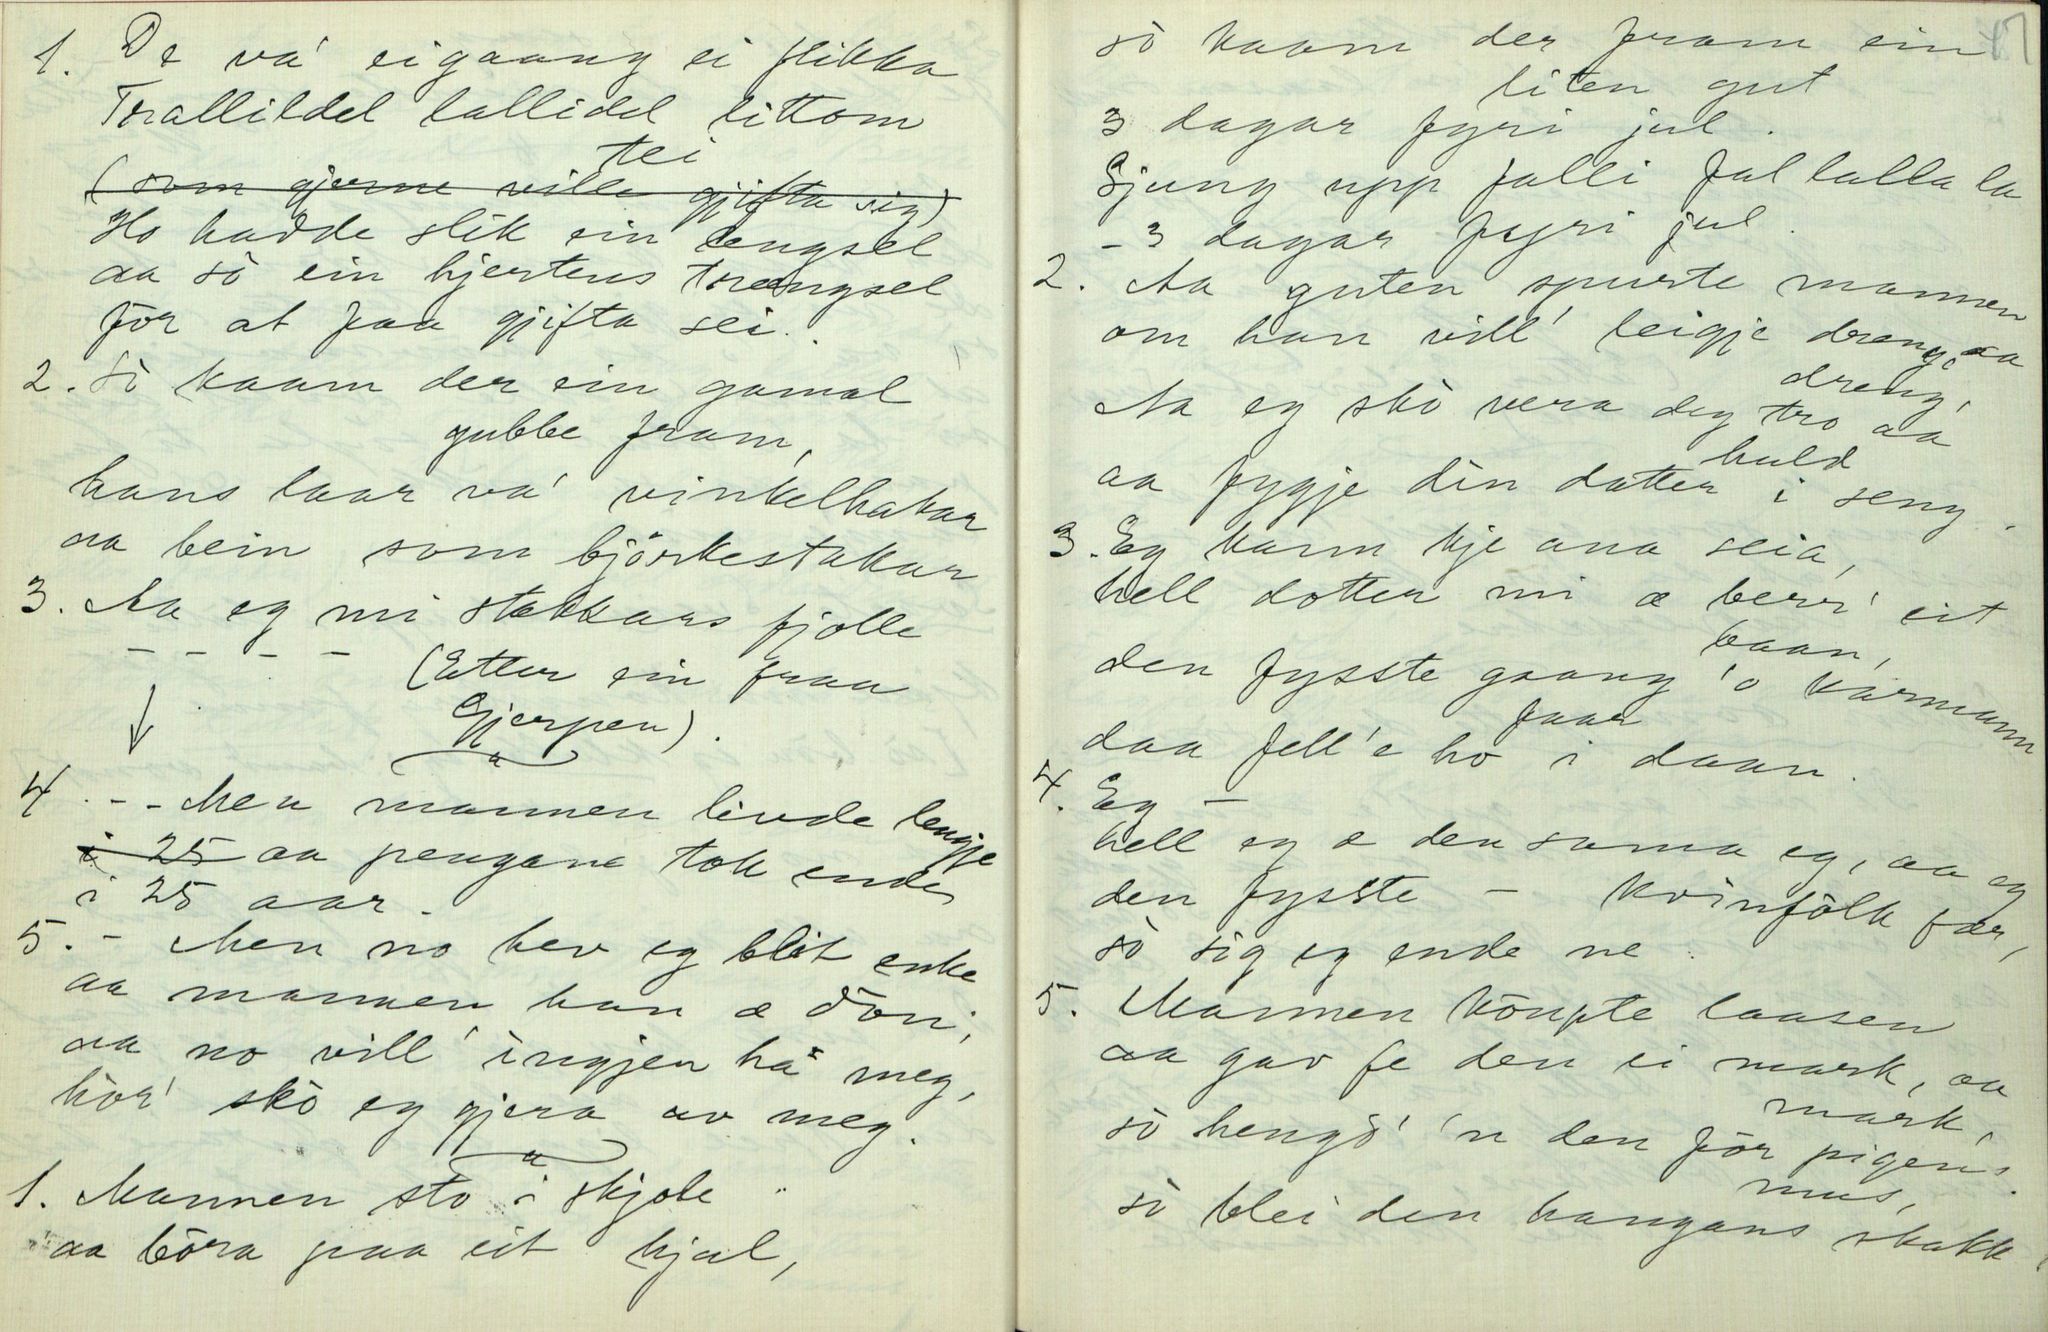 1. De va' eigaang ei flikka
Torallildel lallidel littom
tei
(som gjerne ville gjifta sig)
Ho hadde slik ein lengsel
aa sò ein hjertens trengsel
før at faa gjifta sei.
2. Sò kaam der ein gamal
gubbe fram,
hans laar va' vinkelhakar
aa bein som björkestakar
3. Aa eg mi stakkars fjolle
- - - - (Etter ein fraa
Gjerpen).
4. - - Men mannen livde lengje
i 25 aa pengane tok ende
i 25 aar.
5. - Men no hev eg blit enke
aa mannen han æ døn,
aa no vill' ingjen ha meg,
hòr' skò eg gjera av meg.
1. Mannen sto i skjole
aa bòra paa eit hjul,
17
sò kaam der fram ein
liten gut
3 dagar fyri jul.
Sjung upp falli fallalla la
- 3 dagar fyri jul.
2. Aa guten spurte mannen
om han vill' leigje dreng, aa
dreng,
Aa eg skò vera deg tro aa
huld
aa fygje din dotter i seng.
3. Eg kann kje ana seia,
hell dotter mi æ berr' eit
baan,
den fysste gaang 'o karmann
faar
daa fell'e ho i daan.
4. Eg -
hell eg æ den sama eg, aa eg
den fysste - kvinfòlk fær,
sò sig eg ende ne.
5. Mannen kòupte laasen
aa gav fe den ei mark, aa
mark,
sò hengd' 'n den fòr pigens
mus,
sò blei den hangans skakk.